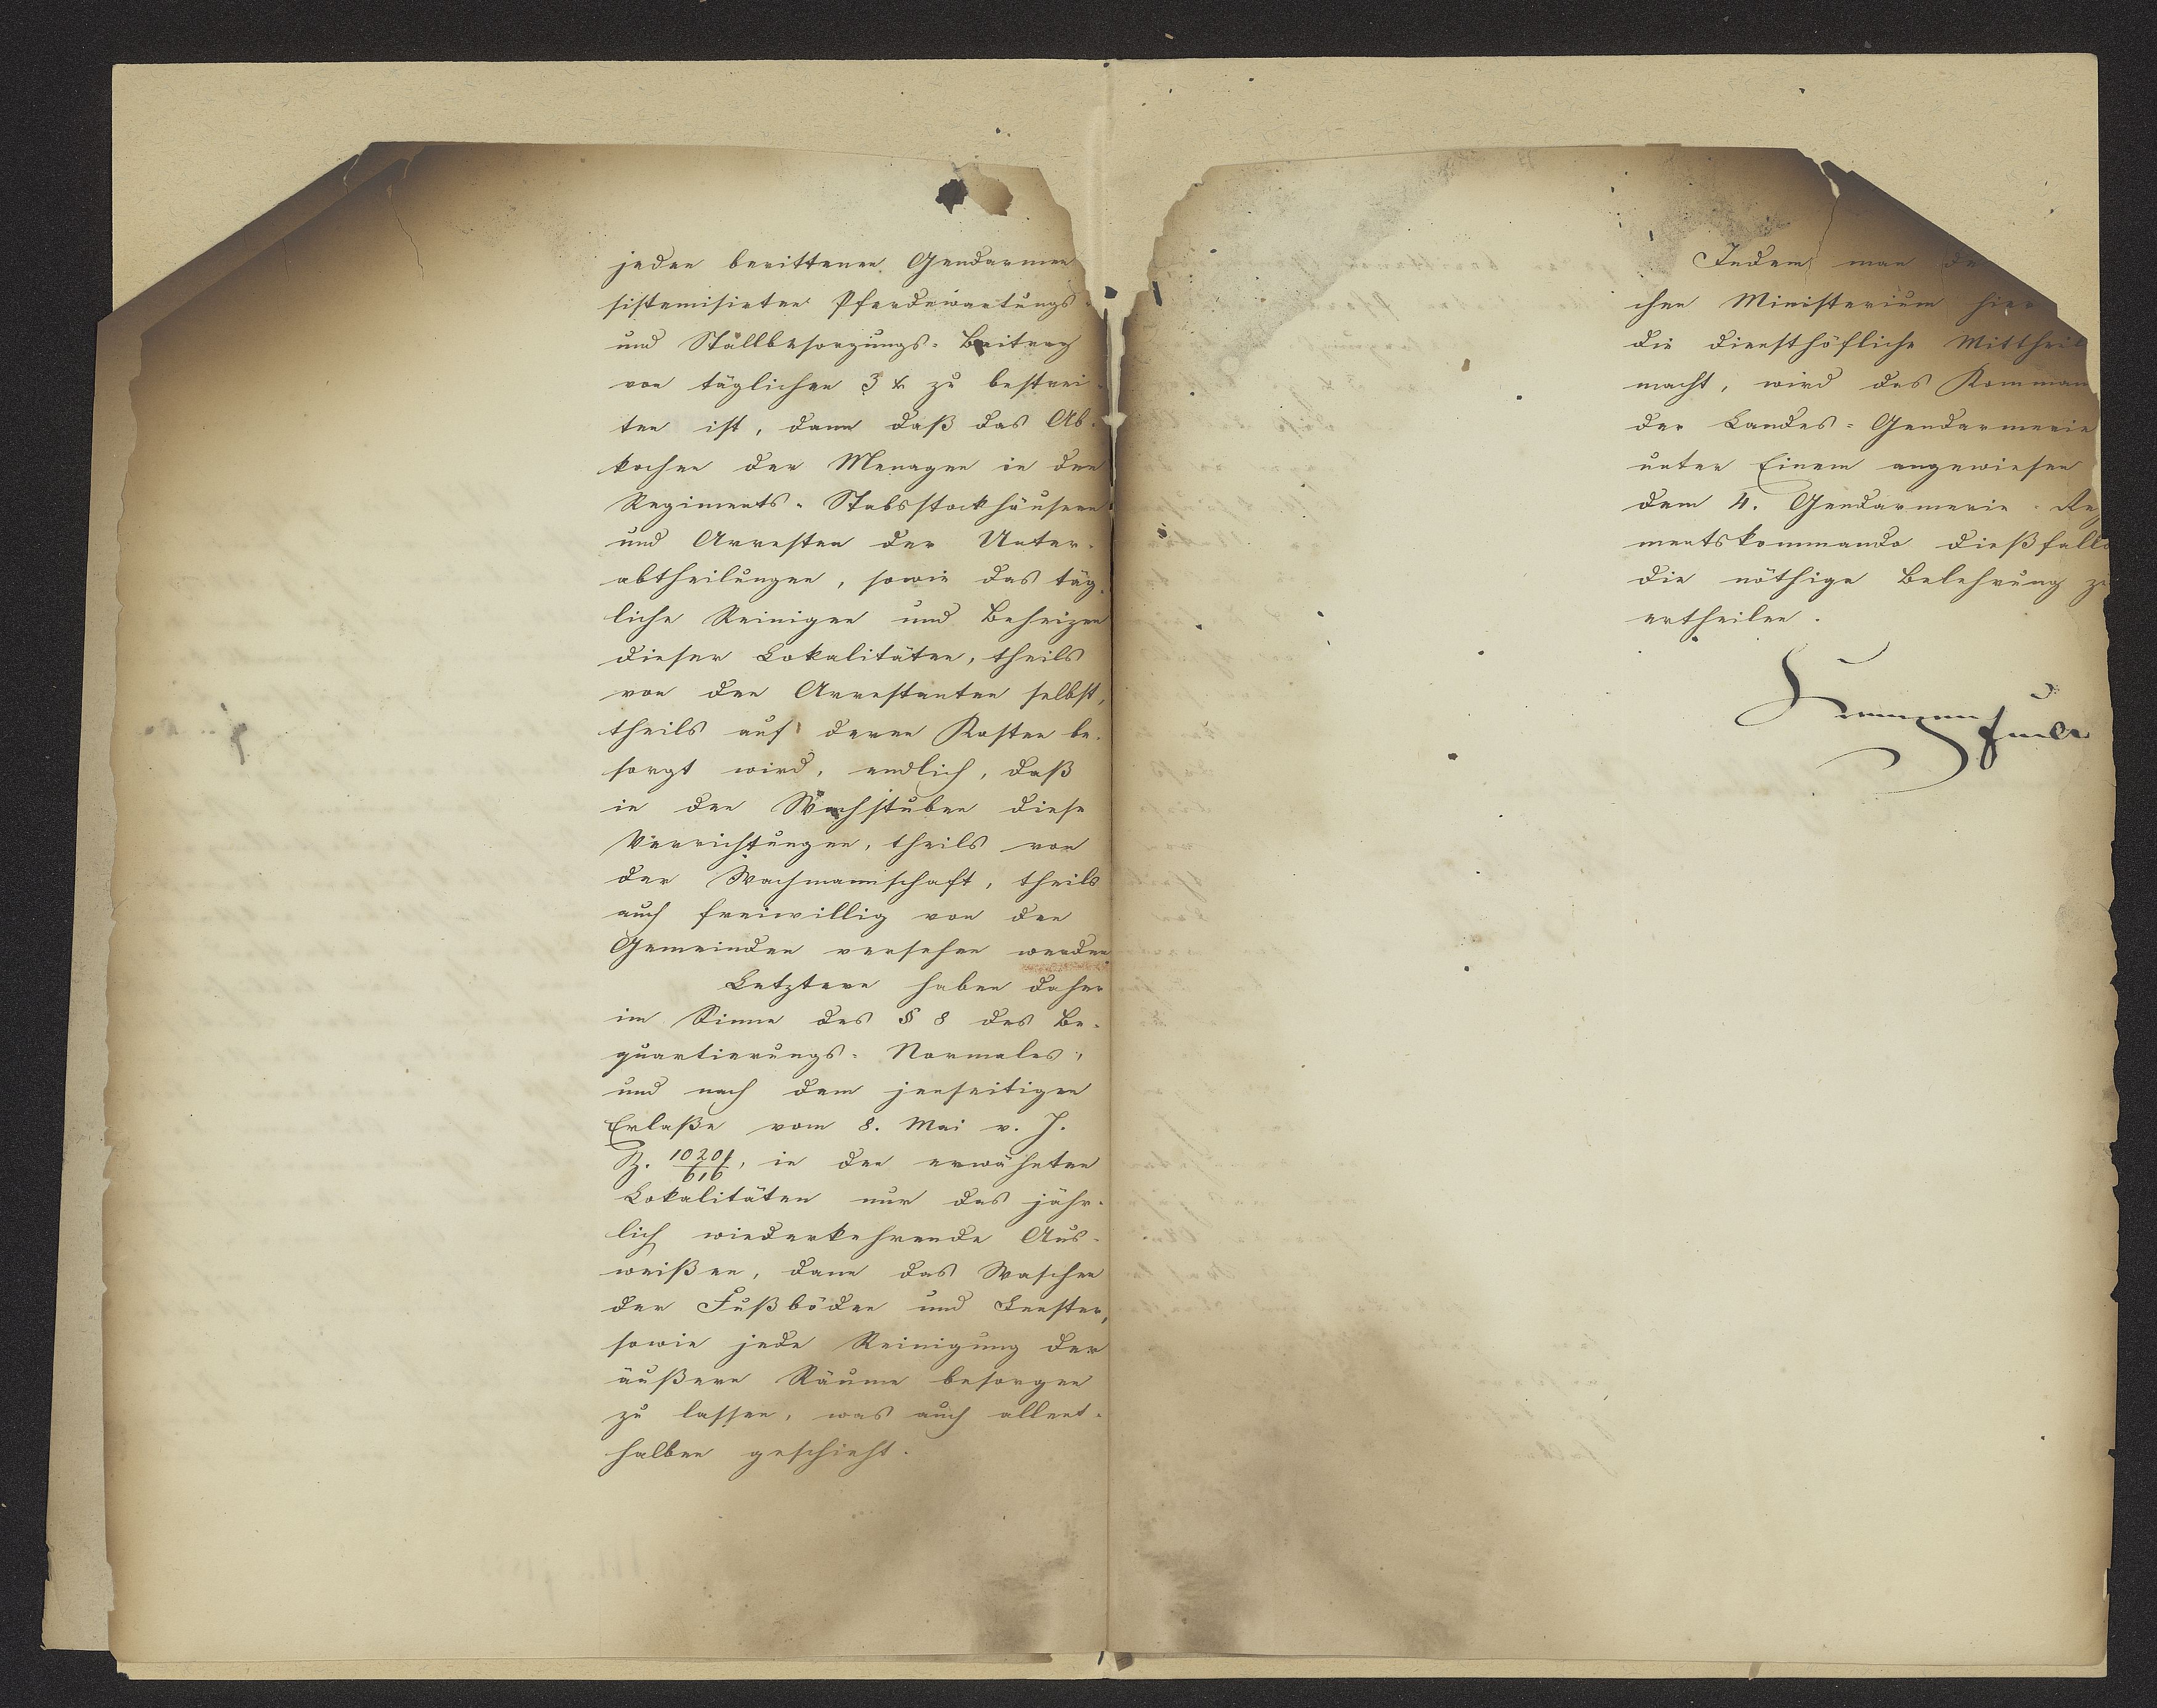 jeden berittenen Gendarmen
sistemisirten Pferdewartungs-
und Stallbesorgungs-Beitrag
von täglichen 3 x zu bestrei-
ten ist, dann daß das Ab-
kochen der Menagen in den
Regiments-Stabsstockhäusern
und Arresten der Unter-
abtheilungen, sowie das täg-
liche Reinigen und Beheizen
dieser Lokalitäten, theils
von den Arrestanten selbst,
theils auf deren Kosten be-
sorgt wird, endlich, daß
in den Wachstuben diese
Verrichtungen, theils von
der Wachmannschaft, theils
auch freiwillig von den
Gemeinden versehen werden.
Letztere haben daher
im Sinne des § 8 des Be-
quartierungs-Normales,
und nach dem jenseitigen
Erlaße vom 8. Mai v. J.
Z. 10201/616, in den erwähnten
Lokalitäten nur das jähr-
lich wiederkehrende Aus-
weißen, dann das Waschen
der Fußböden und Fenster,
sowie jede Reinigung der
äußeren Räume besorgen
zu lassen, was auch allent-
halben geschieht.
Indem man de
chen Ministerium hier
die diensthöfliche Mittheil
macht, wird das Komman
der Landes-Gendarmerie
unter Einem angewiesen
dem 4. Gendarmerie-Re
mentskommando dießfalls
die nöthige Belehrung zu
ertheilen.